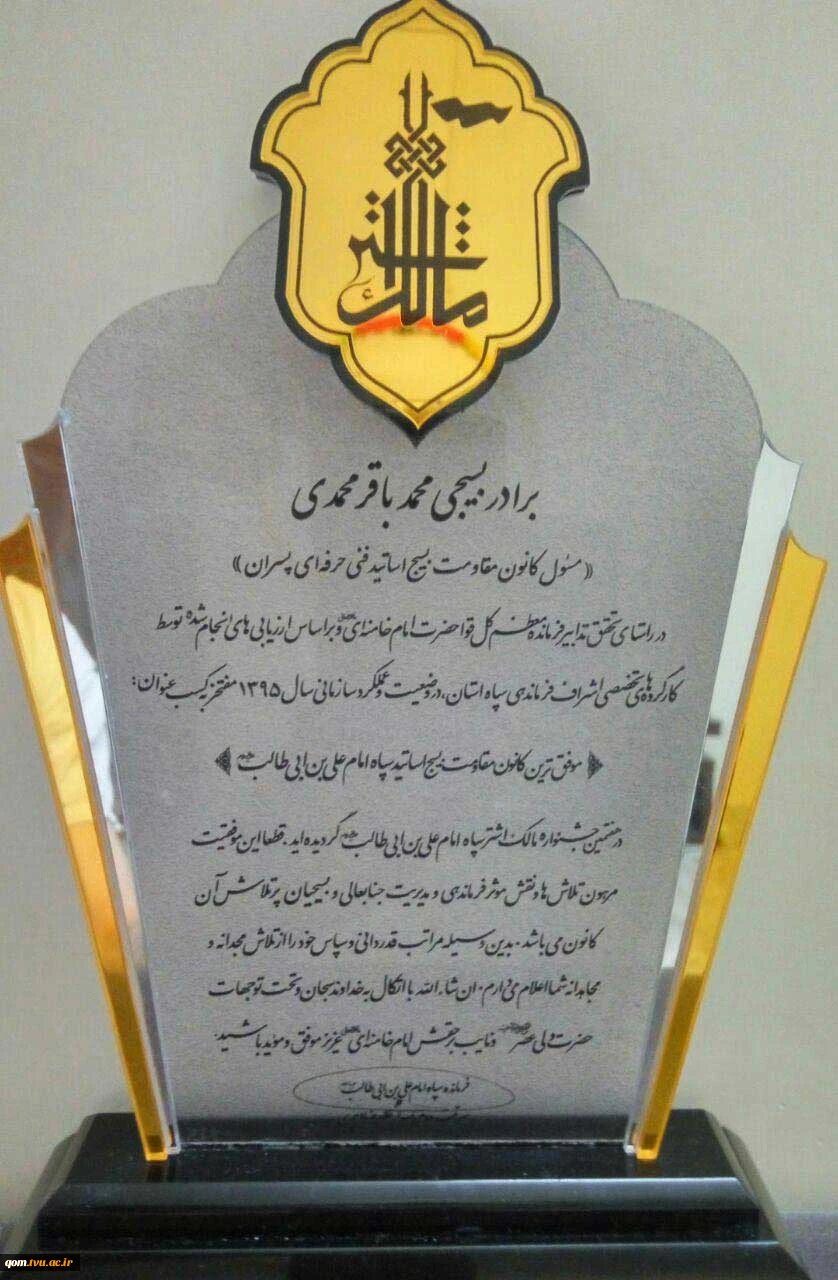 مالک اشتر
برادر بسیجی محمد باقر محمدی
«مسئول کانون مقاومت بسیج اساتید فنی حرفه ای پسران»
در راستای تحقق تدابیر فرمانده معظم کل قوا حضرت امام خامنه ای و براساس ارزیابی های انجام شده توسط
کارگروه های تخصصی اشراف فرماندهی سپاه استان، در وضعیت و عملکرد سازمانی سال ۱۳۹۵ مفتخر به کسب عنوان:
موفق ترین کانون مقاومت بسیج اساتید سپاه امام علی بن ابی طالب
در هفتمین جشنواره مالک اشتر سپاه امام علی بن ابی طالب گردیده اید. قطعا این موفقیت
مرهون تلاش ها و نقش موثر فرماندهی و مدیریت جنابعالی و بسیجیان پرتلاش آن
کانون می باشد. بدین وسیله مراتب قدردانی و سپاس خود را از تلاش مجدانه و
مجاهدانه شما اعلام می دارم. ان شاءالله با اتکال به خداوند سبحان و تحت توجهات
حضرت ولی عصر و نایب برحقش امام خامنه ای عزیز موفق و موید باشید.
فرمانده سپاه امام علی بن ابی طالب
qom.tvu.ac.ir